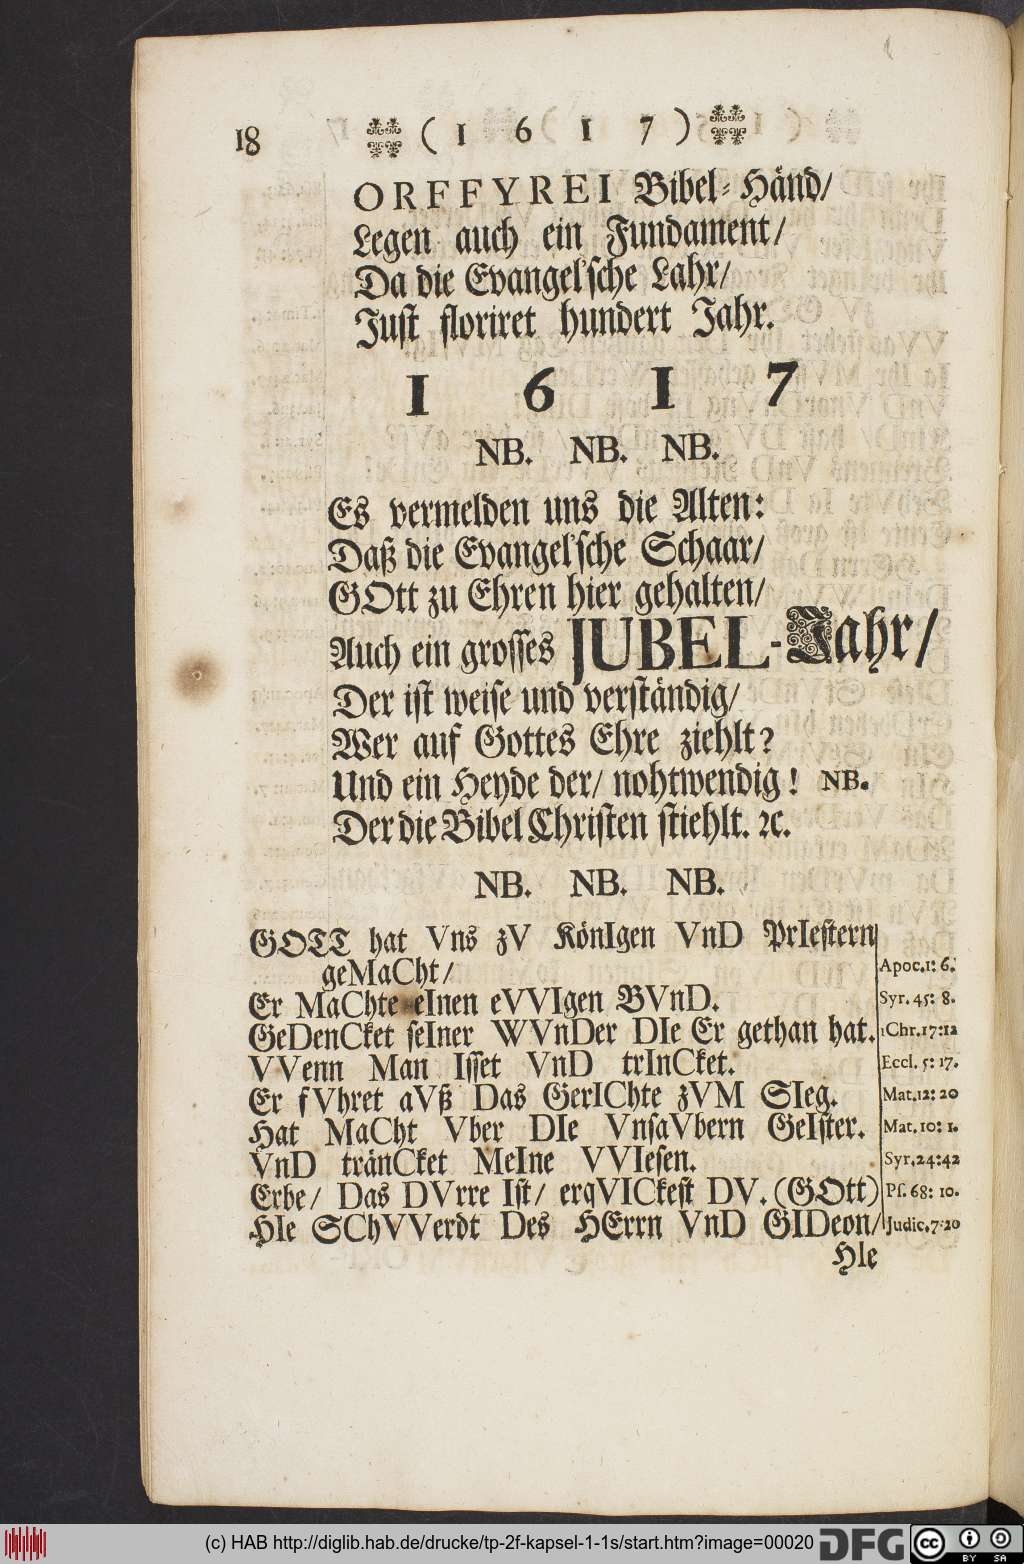 18 ( 1 6 1 7 )
ORFFYREI Bibel-Händ/
Legen auch ein Fundament/
Da die Evangel'sche Lahr/
Just floriret hundert Jahr.
1 6 1 7
NB. NB. NB.
Es vermelden uns die Alten:
Daß die Evangel'sche Schaar/
GOtt zu Ehren hier gehalten/
Auch ein grosses JUBEL-Jahr/
Der ist weise und verständig/
Wer auf Gottes Ehre ziehlt?
Und ein Heyde der/ nohtwendig! NB.
Der die Bibel Christen stiehlt. ꝛc.
NB. NB. NB.
GOTT hat Vns zV KönIgen VnD PrIestern
geMaCht/ Apoc.1: 6.
Er MaChte eInen eVVIgen BVnD. Syr. 45: 8.
GeDenCket seIner WVnDer DIe Er gethan hat. 1Chr.17:12
VVenn Man Isset VnD trInCket. Eccl. 5: 17.
Er fVhret aVß Das GerIChte zVM SIeg. Mat.12: 20
Hat MaCht Vber DIe VnsaVbern GeIster. Mat. 10: 1.
VnD tränCket MeIne VVIesen. Syr.24:42
Erbe/ Das DVrre Ist/ erqVICkest DV. (GOtt) Ps. 68: 10.
HIe SChVVerdt Des HErrn VnD GIDeon/ Judic.7:20
HIe
(c) HAB http://diglib.hab.de/drucke/tp-2f-kapsel-1-1s/start.htm?image=00020 DFG cc BY SA